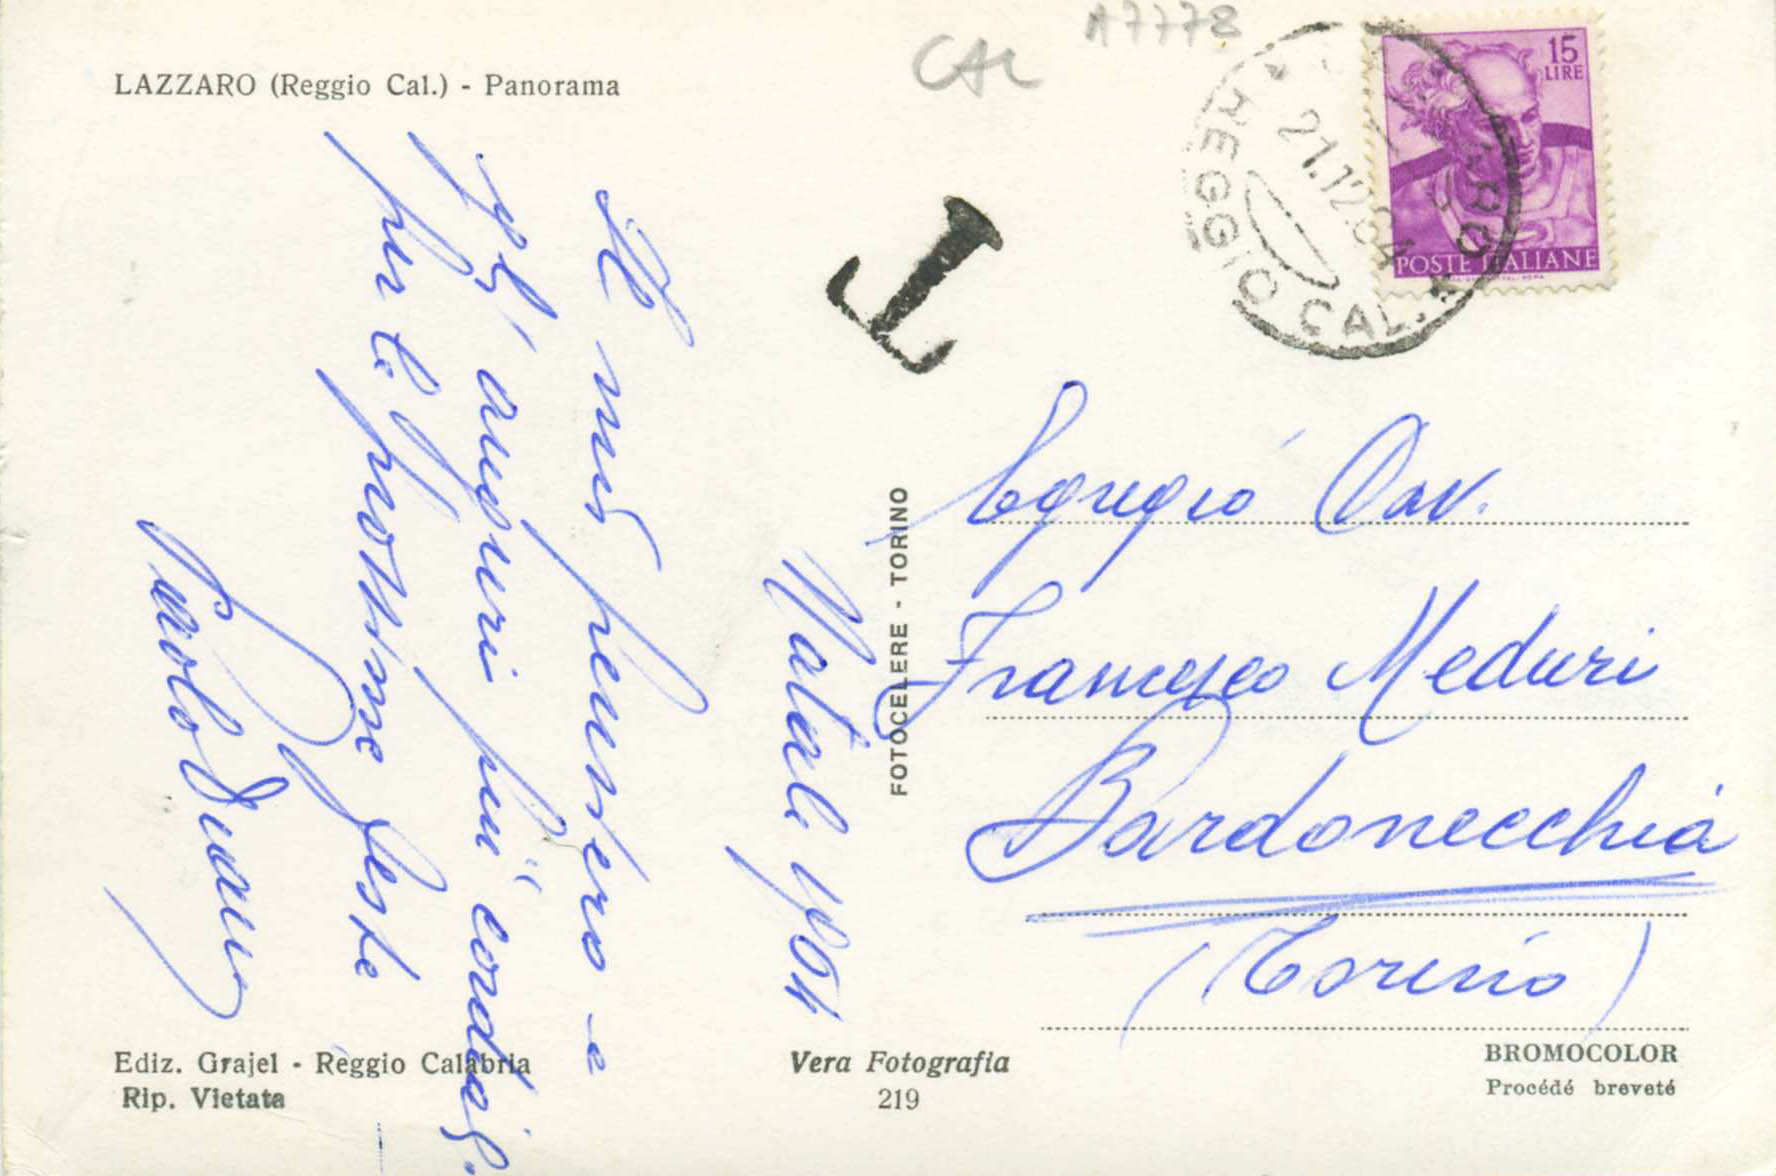 LAZZARO (Reggio Cal.) - Panorama
CAL
A7778
15
LIRE
POSTE ITALIANE
REGGIO CAL.
21.12.64
T
Natale 1964
Il mio pensiero e
gl' auguri più cordiali.
per le prossime feste
Paolo
FOTOCELERE - TORINO
Egregio Cav.
Francesco Meduri
Bardonecchia
(Torino)
Ediz. Grajel - Reggio Calabria
Rip. Vietata
Vera Fotografia
219
BROMOCOLOR
Procédé breveté